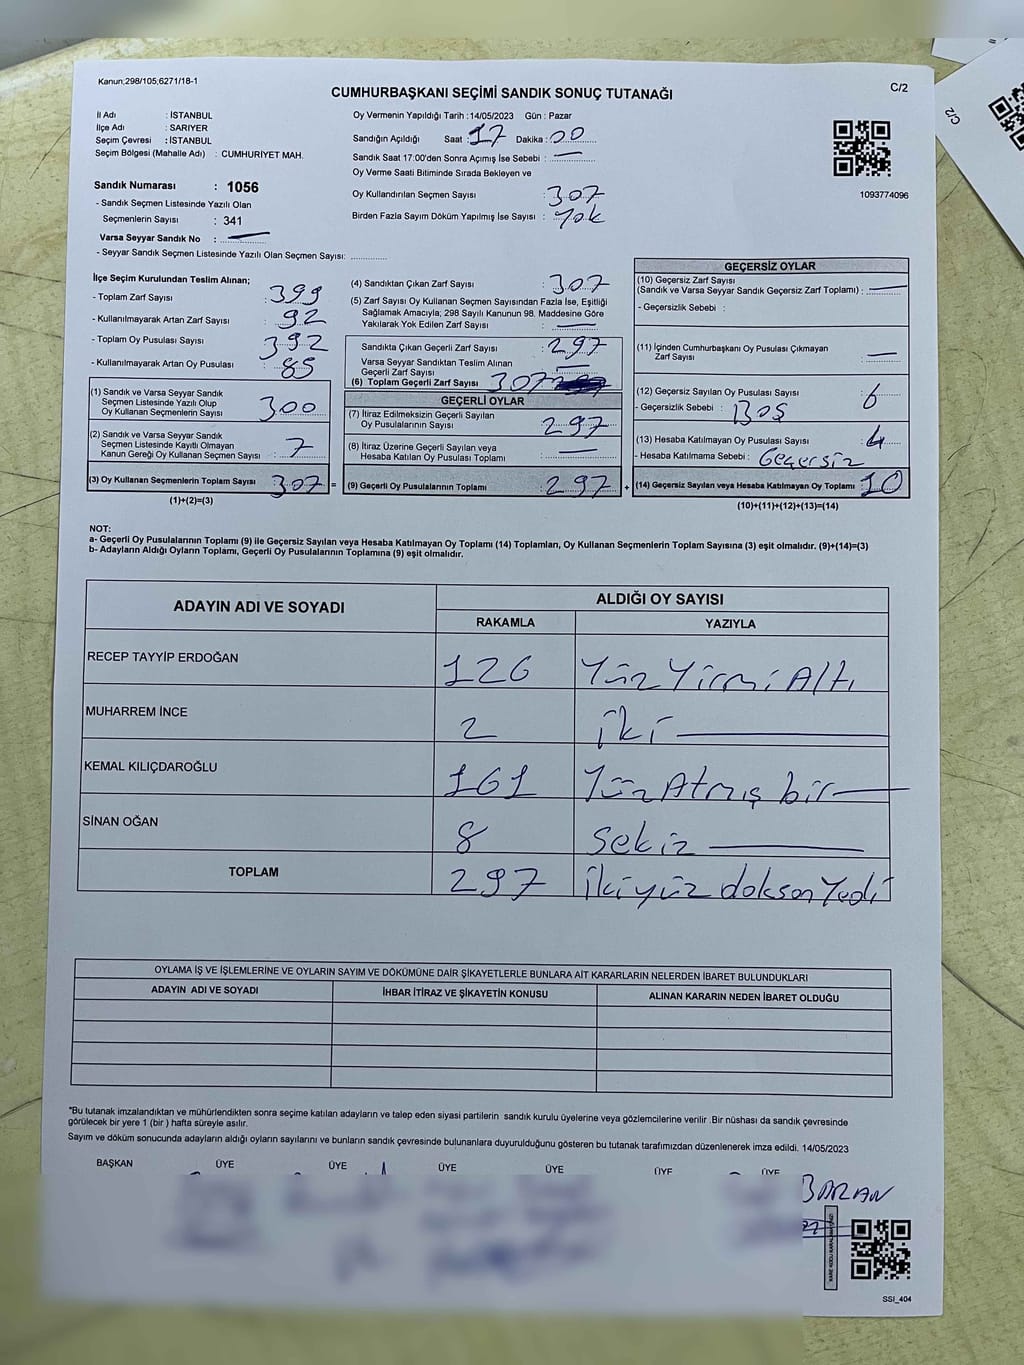 Kanun;298/105;6271/18-1
C/2
CUMHURBAŞKANI SEÇİMİ SANDIK SONUÇ TUTANAĞI
İl Adı : İSTANBUL
İlçe Adı : SARIYER
Seçim Çevresi : İSTANBUL
Seçim Bölgesi (Mahalle Adı) : CUMHURİYET MAH.
Sandık Numarası : 1056
- Sandık Seçmen Listesinde Yazılı Olan
Seçmenlerin Sayısı : 341
Varsa Seyyar Sandık No :
- Seyyar Sandık Seçmen Listesinde Yazılı Olan Seçmen Sayısı:
Oy Vermenin Yapıldığı Tarih :14/05/2023 Gün : Pazar
Sandığın Açıldığı Saat : 17 Dakika : 00
Sandık Saat 17:00'den Sonra Açımış İse Sebebi : —
Oy Verme Saati Bitiminde Sırada Bekleyen ve
Oy Kullandırılan Seçmen Sayısı : 307
Birden Fazla Sayım Döküm Yapılmış İse Sayısı : Yok
1093774096
C/2
İlçe Seçim Kurulundan Teslim Alınan;
- Toplam Zarf Sayısı : 399
- Kullanılmayarak Artan Zarf Sayısı : 92
- Toplam Oy Pusulası Sayısı : 392
- Kullanılmayarak Artan Oy Pusulası : 85
(1) Sandık ve Varsa Seyyar Sandık
Seçmen Listesinde Yazılı Olup
Oy Kullanan Seçmenlerin Sayısı : 300
(2) Sandık ve Varsa Seyyar Sandık
Seçmen Listesinde Kayıtlı Olmayan
Kanun Gereği Oy Kullanan Seçmen Sayısı : 7
(3) Oy Kullanan Seçmenlerin Toplam Sayısı : 307 =
(1)+(2)=(3)
(4) Sandıktan Çıkan Zarf Sayısı : 307
(5) Zarf Sayısı Oy Kullanan Seçmen Sayısından Fazla İse, Eşitliği
Sağlamak Amacıyla; 298 Sayılı Kanunun 98. Maddesine Göre
Yakılarak Yok Edilen Zarf Sayısı : —
Sandıkta Çıkan Geçerli Zarf Sayısı : 297
Varsa Seyyar Sandıktan Teslim Alınan
Geçerli Zarf Sayısı : —
(6) Toplam Geçerli Zarf Sayısı : 307
GEÇERLİ OYLAR
(7) İtiraz Edilmeksizin Geçerli Sayılan
Oy Pusulalarının Sayısı : 297
(8) İtiraz Üzerine Geçerli Sayılan veya
Hesaba Katılan Oy Pusulası Toplamı : —
(9) Geçerli Oy Pusulalarının Toplamı : 297 +
GEÇERSİZ OYLAR
(10) Geçersiz Zarf Sayısı
(Sandık ve Varsa Seyyar Sandık Geçersiz Zarf Toplamı) : —
- Geçersizlik Sebebi :
(11) İçinden Cumhurbaşkanı Oy Pusulası Çıkmayan
Zarf Sayısı : —
(12) Geçersiz Sayılan Oy Pusulası Sayısı : 6
- Geçersizlik Sebebi : BOŞ
(13) Hesaba Katılmayan Oy Pusulası Sayısı : 4
- Hesaba Katılmama Sebebi : Geçersiz
(14) Geçersiz Sayılan veya Hesaba Katılmayan Oy Toplamı : 10
(10)+(11)+(12)+(13)=(14)
NOT:
a- Geçerli Oy Pusulalarının Toplamı (9) ile Geçersiz Sayılan veya Hesaba Katılmayan Oy Toplamı (14) Toplamları, Oy Kullanan Seçmenlerin Toplam Sayısına (3) eşit olmalıdır. (9)+(14)=(3)
b- Adayların Aldığı Oyların Toplamı, Geçerli Oy Pusulalarının Toplamına (9) eşit olmalıdır.
ADAYIN ADI VE SOYADI
ALDIĞI OY SAYISI
RAKAMLA YAZIYLA
RECEP TAYYİP ERDOĞAN 126 Yüz Yirmi Altı
MUHARREM İNCE 2 iki
KEMAL KILIÇDAROĞLU 161 Yüz Atmış bir
SİNAN OĞAN 8 Sekiz
TOPLAM 297 İkiyüz doksan Yedi
OYLAMA İŞ VE İŞLEMLERİNE VE OYLARIN SAYIM VE DÖKÜMÜNE DAİR ŞİKAYETLERLE BUNLARA AİT KARARLARIN NELERDEN İBARET BULUNDUKLARI
ADAYIN ADI VE SOYADI İHBAR İTİRAZ VE ŞİKAYETİN KONUSU ALINAN KARARIN NEDEN İBARET OLDUĞU
"Bu tutanak imzalandıktan ve mühürlendikten sonra seçime katılan adayların ve talep eden siyasi partilerin sandık kurulu üyelerine veya gözlemcilerine verilir .Bir nüshası da sandık çevresinde
görülecek bir yere 1 (bir ) hafta süreyle asılır.
Sayım ve döküm sonucunda adayların aldığı oyların sayılarını ve bunların sandık çevresinde bulunanlara duyurulduğunu gösteren bu tutanak tarafımızdan düzenlenerek imza edildi. 14/05/2023
BAŞKAN ÜYE ÜYE ÜYE ÜYE ÜYE ÜYE
BARAN
SSİ_404